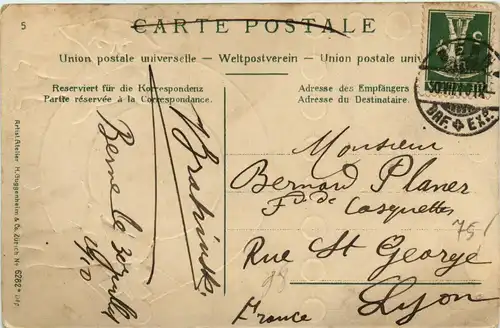 5
CARTE POSTALE
Union postale universelle – Weltpostverein – Union postale univ
Reserviert für die Korrespondenz
Partie réservée à la Correspondance.
Adresse des Empfängers
Adresse du Destinataire.
BERN
BRF. EXP.
Berne le 30 juillet
1910
Monsieur
Bernard Planer
Ft de Casquettes
75
Rue St George
Lyon
France
Artist. Atelier H. Guggenheim & Co. Zürich No 6282* Dép.